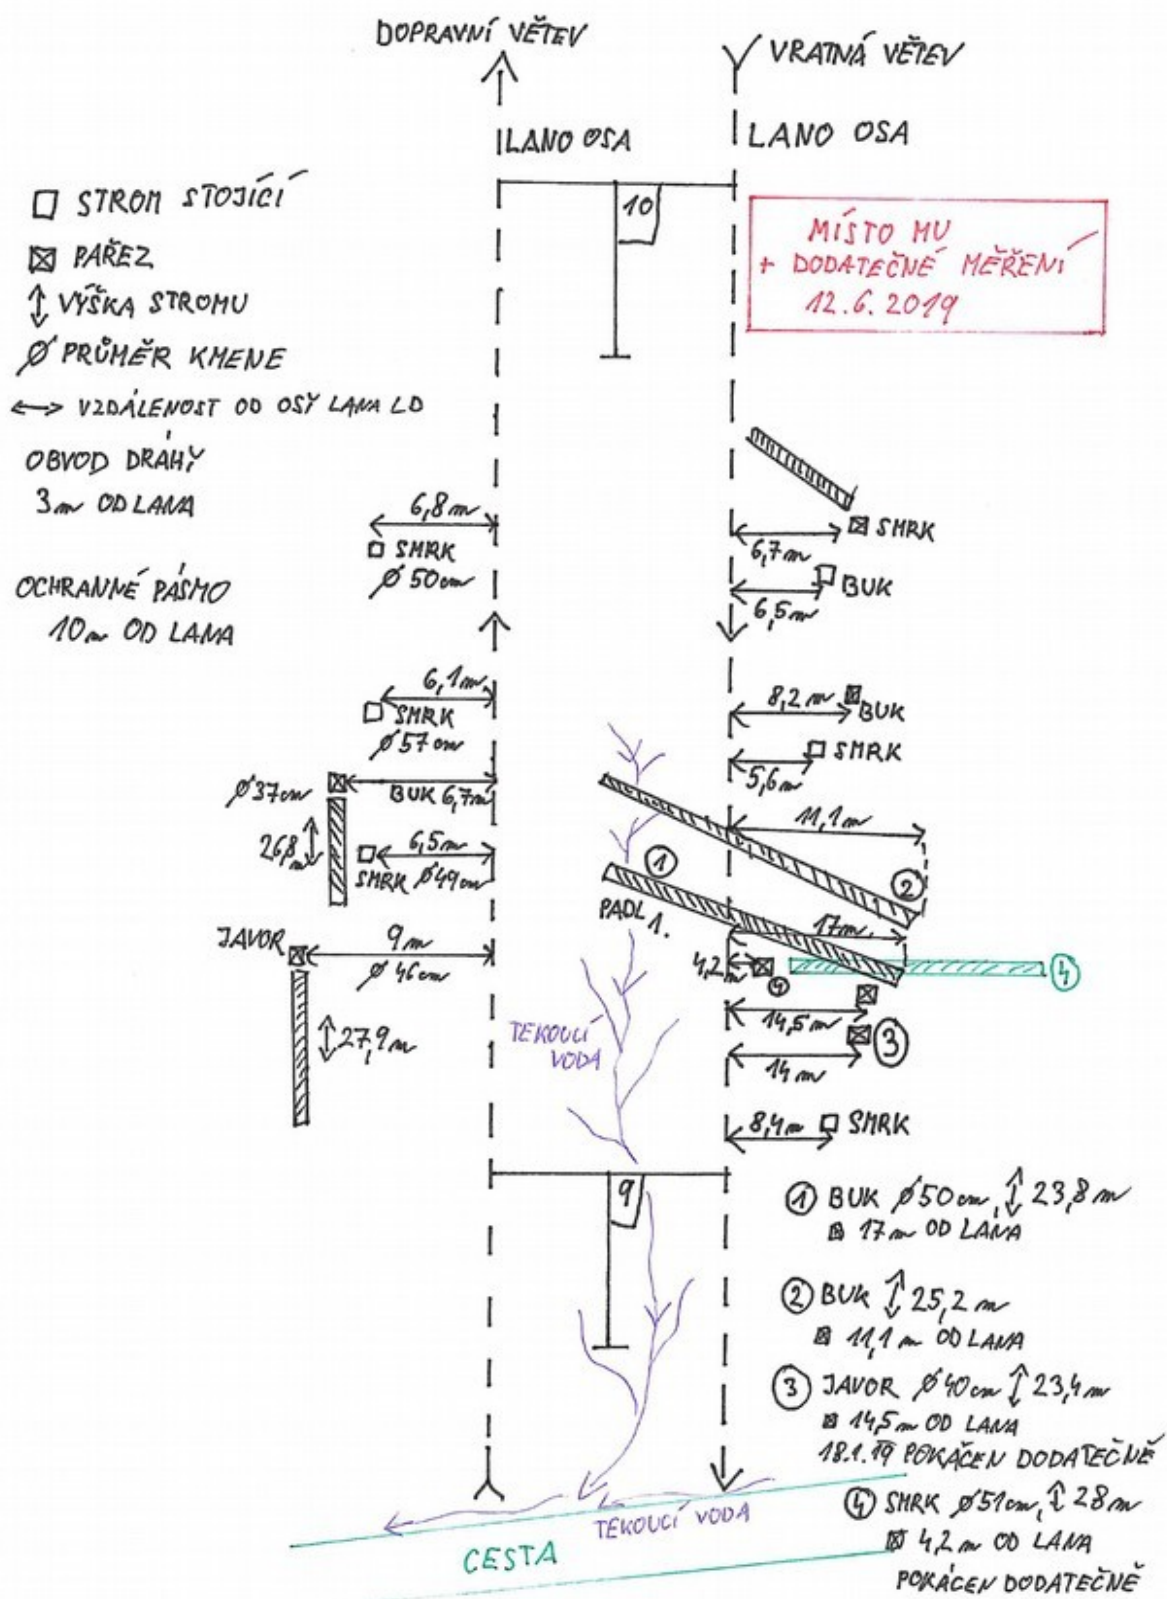 DOPRAVNÍ VĚTEV
VRATNÁ VĚTEV
LANO OSA
LANO OSA
10
MÍSTO MU
+ DODATEČNÉ MĚŘENÍ
12.6.2019
STROM STOJÍCÍ
PAŘEZ
VÝŠKA STROMU
Ø PRŮMĚR KMENE
VZDÁLENOST OD OSY LANA LD
OBVOD DRÁHY
3m OD LANA
OCHRANNÉ PÁSMO
10m OD LANA
6,8m
SMRK
Ø 50cm
6,7m
SMRK
BUK
6,5m
6,1m
SMRK
Ø 57cm
8,2m
BUK
SMRK
5,6m
Ø 37cm
BUK 6,7m
26,8m
6,5m
SMRK Ø 49cm
11,1m
1
2
PADL 1.
17m.
JAVOR
9m
Ø 46cm
27,9m
4,2m
4
4
14,5m
3
14m
TEKOUCÍ
VODA
8,4m
SMRK
9
1 BUK Ø 50cm, 23,8m
17m OD LANA
2 BUK 25,2m
11,1m OD LANA
3 JAVOR Ø 40cm 23,4m
14,5m OD LANA
18.1.19 POKÁCEN DODATEČNĚ
4 SMRK Ø 51cm, 28m
4,2m OD LANA
POKÁCEN DODATEČNĚ
TEKOUCÍ VODA
CESTA